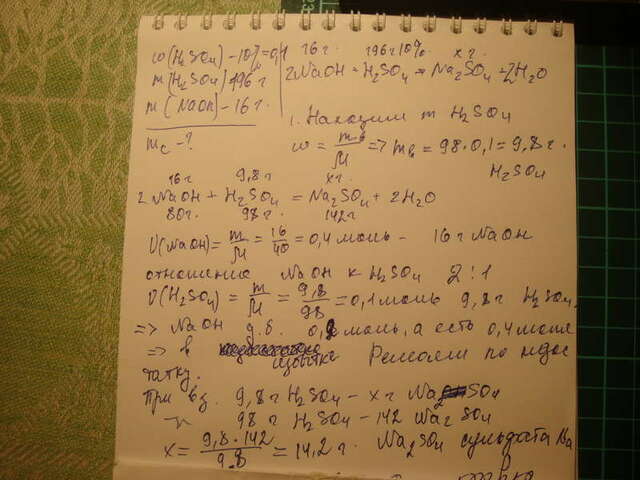 w(H2SO4) - 10% = 0,1
m(H2SO4) 196 г
m(NaOH) - 16 г.
mc - ?
16 г. 196 г 10% x г.
2NaOH + H2SO4 → Na2SO4 + 2H2O
1. Находим m H2SO4
w = m / M => mв = 98 · 0,1 = 9,8 г.
H2SO4
16 г 9,8 г x г
2NaOH + H2SO4 = Na2SO4 + 2H2O
80 г. 98 г. 142 г
V(NaOH) = m/M = 16/40 = 0,4 моль - 16 г NaOH
отношение NaOH к H2SO4 2 : 1
V(H2SO4) = m/M = 9,8/98 = 0,1 моль 9,8 г H2SO4.
=> NaOH д.б. 0,2 моль, а есть 0,4 моля
=> в избытке Решаем по недос
татку.
При вз. 9,8 г H2SO4 - x г Na2SO4
98 г H2SO4 - 142 Na2SO4
x = 9,8 · 142 / 98 = 14,2 г. Na2SO4 сульфата Na